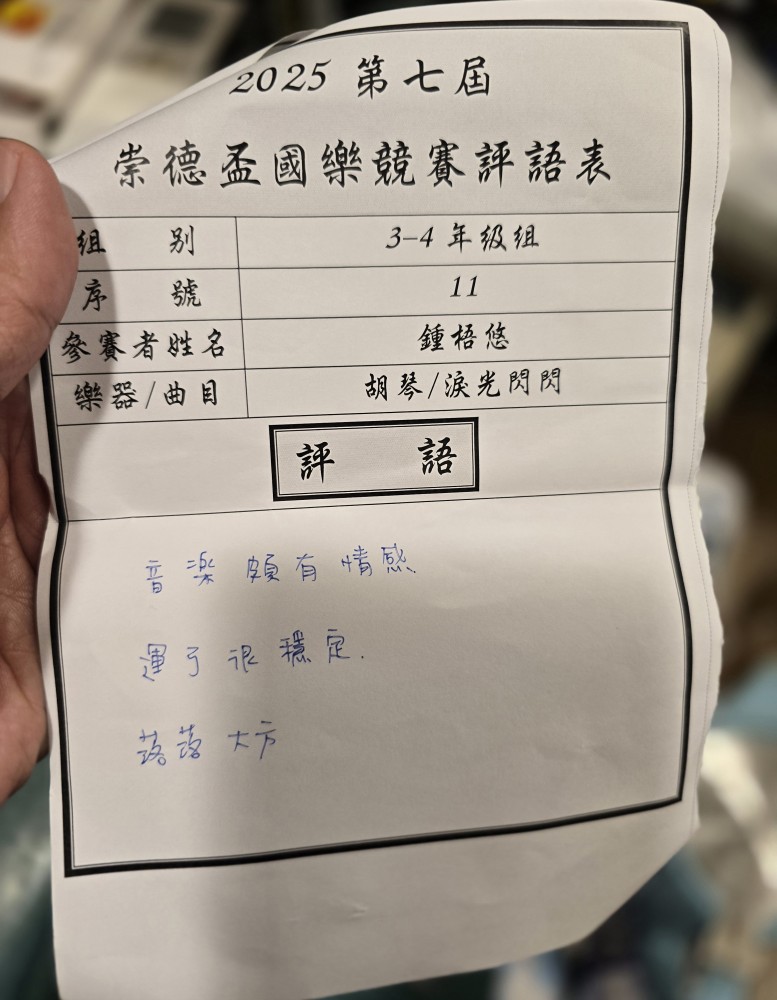 2025 第七屆
崇德盃國樂競賽評語表
組 別 3-4 年級組
序 號 11
參賽者姓名 鍾梧悠
樂器/曲目 胡琴/淚光閃閃
評 語
音樂頗有情感
運弓很穩定.
落落大方